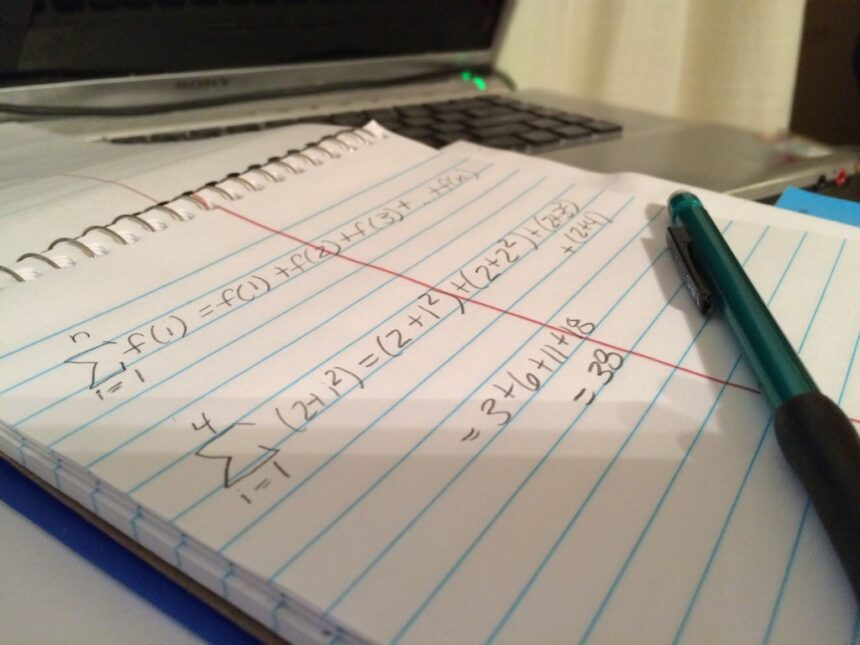 SONY
n
∑ f(i) = f(1) + f(2) + f(3) + ... + f(n)
i = 1
4
∑ (2+i²) = (2+1²) + (2+2²) + (2+3²)
i = 1
+ (2+4²)
= 3+6+11+18
= 38